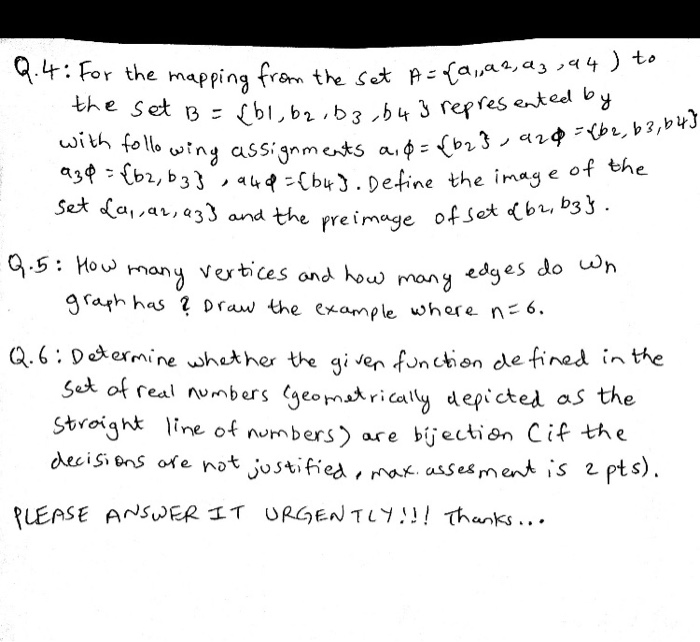 Q.4: For the mapping from the set A = {a1,a2,a3,a4) to
the set B = {b1,b2,b3,b4} represented by
with following assignments a1φ = {b2}, a2φ = {b2,b3,b4}
a3φ = {b2,b3}, a4φ = {b4}. Define the image of the
set {a1,a2,a3} and the preimage of set {b2,b3}.
Q.5: How many vertices and how many edges do wn
graph has ? Draw the example where n=6.
Q.6: Determine whether the given function defined in the
set of real numbers (geometrically depicted as the
straight line of numbers) are bijection (if the
decisions are not justified, max. assesment is 2 pts).
PLEASE ANSWER IT URGENTLY!!! Thanks...